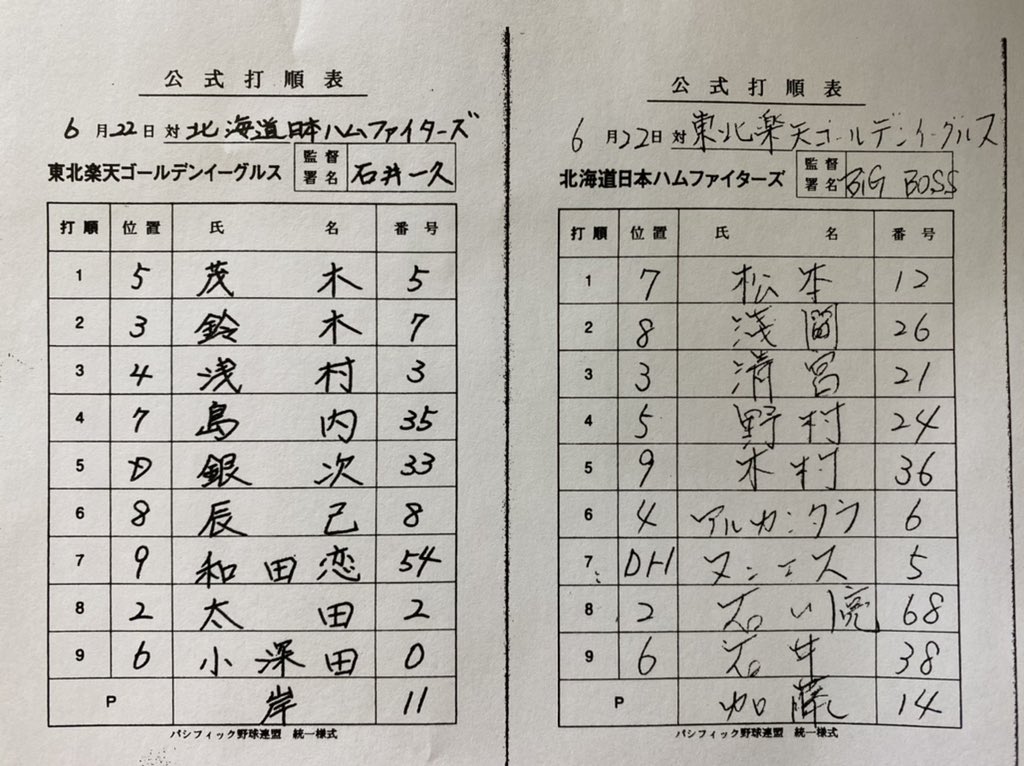 公式打順表
6月22日 対 北海道日本ハムファイターズ
東北楽天ゴールデンイーグルス 監督署名 石井一久
打順 位置 氏名 番号
1 5 茂木 5
2 3 鈴木 7
3 4 浅村 3
4 7 島内 35
5 D 銀次 33
6 8 辰己 8
7 9 和田恋 54
8 2 太田 2
9 6 小深田 0
P 岸 11
パシフィック野球連盟 統一様式
公式打順表
6月22日 対 東北楽天ゴールデンイーグルス
北海道日本ハムファイターズ 監督署名 BIG BOSS
打順 位置 氏名 番号
1 7 松本 12
2 8 浅間 26
3 3 清宮 21
4 5 野村 24
5 9 木村 36
6 4 アルカンタラ 6
7 DH ヌニエス 5
8 2 石川亮 68
9 6 石井 38
P 加藤 14
パシフィック野球連盟 統一様式